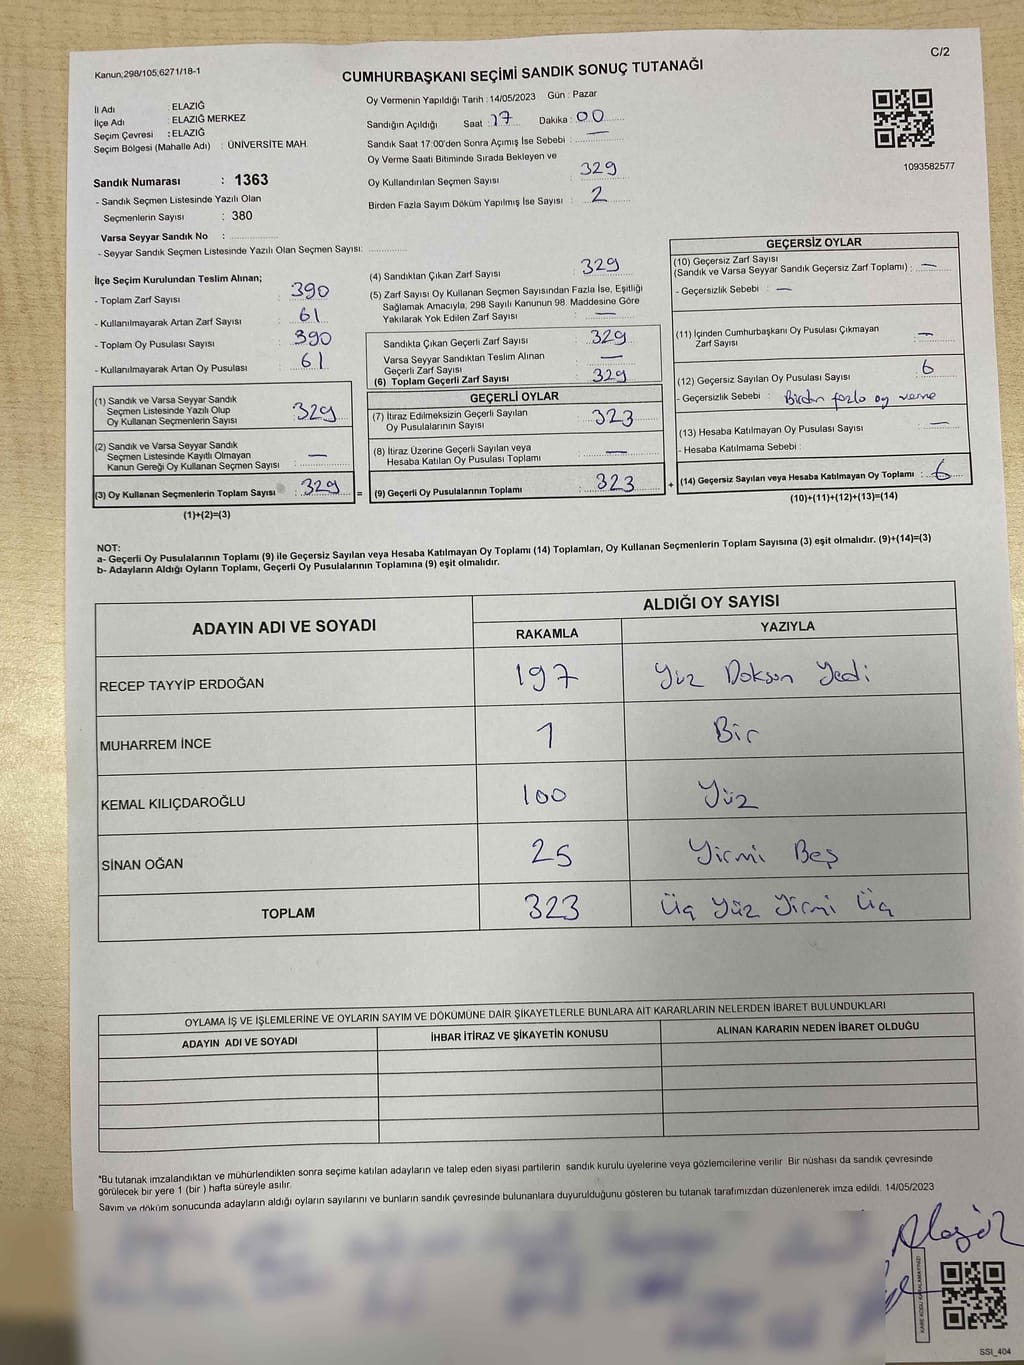 Kanun;298/105;6271/18-1
C/2
CUMHURBAŞKANI SEÇİMİ SANDIK SONUÇ TUTANAĞI
İl Adı : ELAZIĞ
İlçe Adı : ELAZIĞ MERKEZ
Seçim Çevresi : ELAZIĞ
Seçim Bölgesi (Mahalle Adı) : ÜNİVERSİTE MAH.
Sandık Numarası : 1363
- Sandık Seçmen Listesinde Yazılı Olan
Seçmenlerin Sayısı : 380
Varsa Seyyar Sandık No :
- Seyyar Sandık Seçmen Listesinde Yazılı Olan Seçmen Sayısı:
Oy Vermenin Yapıldığı Tarih : 14/05/2023 Gün : Pazar
Sandığın Açıldığı Saat : 17 Dakika : 00
Sandık Saat 17:00'den Sonra Açımış İse Sebebi : —
Oy Verme Saati Bitiminde Sırada Bekleyen ve
Oy Kullandırılan Seçmen Sayısı : 329
Birden Fazla Sayım Döküm Yapılmış İse Sayısı : 2
1093582577
İlçe Seçim Kurulundan Teslim Alınan;
- Toplam Zarf Sayısı : 390
- Kullanılmayarak Artan Zarf Sayısı : 61
- Toplam Oy Pusulası Sayısı : 390
- Kullanılmayarak Artan Oy Pusulası : 61
(1) Sandık ve Varsa Seyyar Sandık
Seçmen Listesinde Yazılı Olup
Oy Kullanan Seçmenlerin Sayısı : 329
(2) Sandık ve Varsa Seyyar Sandık
Seçmen Listesinde Kayıtlı Olmayan
Kanun Gereği Oy Kullanan Seçmen Sayısı : —
(3) Oy Kullanan Seçmenlerin Toplam Sayısı : 329 =
(1)+(2)=(3)
(4) Sandıktan Çıkan Zarf Sayısı : 329
(5) Zarf Sayısı Oy Kullanan Seçmen Sayısından Fazla İse, Eşitliği
Sağlamak Amacıyla, 298 Sayılı Kanunun 98. Maddesine Göre
Yakılarak Yok Edilen Zarf Sayısı : —
Sandıkta Çıkan Geçerli Zarf Sayısı : 329
Varsa Seyyar Sandıktan Teslim Alınan
Geçerli Zarf Sayısı : —
(6) Toplam Geçerli Zarf Sayısı : 329
GEÇERLİ OYLAR
(7) İtiraz Edilmeksizin Geçerli Sayılan
Oy Pusulalarının Sayısı : 323
(8) İtiraz Üzerine Geçerli Sayılan veya
Hesaba Katılan Oy Pusulası Toplamı : —
(9) Geçerli Oy Pusulalarının Toplamı : 323 +
GEÇERSİZ OYLAR
(10) Geçersiz Zarf Sayısı
(Sandık ve Varsa Seyyar Sandık Geçersiz Zarf Toplamı) : —
- Geçersizlik Sebebi : —
(11) İçinden Cumhurbaşkanı Oy Pusulası Çıkmayan
Zarf Sayısı : —
(12) Geçersiz Sayılan Oy Pusulası Sayısı : 6
- Geçersizlik Sebebi : Birden fazla oy verme
(13) Hesaba Katılmayan Oy Pusulası Sayısı : —
- Hesaba Katılmama Sebebi :
(14) Geçersiz Sayılan veya Hesaba Katılmayan Oy Toplamı : 6
(10)+(11)+(12)+(13)=(14)
NOT:
a- Geçerli Oy Pusulalarının Toplamı (9) ile Geçersiz Sayılan veya Hesaba Katılmayan Oy Toplamı (14) Toplamları, Oy Kullanan Seçmenlerin Toplam Sayısına (3) eşit olmalıdır. (9)+(14)=(3)
b- Adayların Aldığı Oyların Toplamı, Geçerli Oy Pusulalarının Toplamına (9) eşit olmalıdır.
ADAYIN ADI VE SOYADI
ALDIĞI OY SAYISI
RAKAMLA YAZIYLA
RECEP TAYYİP ERDOĞAN 197 Yüz Doksan Yedi
MUHARREM İNCE 1 Bir
KEMAL KILIÇDAROĞLU 100 Yüz
SİNAN OĞAN 25 Yirmi Beş
TOPLAM 323 Üç Yüz Yirmi Üç
OYLAMA İŞ VE İŞLEMLERİNE VE OYLARIN SAYIM VE DÖKÜMÜNE DAİR ŞİKAYETLERLE BUNLARA AİT KARARLARIN NELERDEN İBARET BULUNDUKLARI
ADAYIN ADI VE SOYADI İHBAR İTİRAZ VE ŞİKAYETİN KONUSU ALINAN KARARIN NEDEN İBARET OLDUĞU
*Bu tutanak imzalandıktan ve mühürlendikten sonra seçime katılan adayların ve talep eden siyasi partilerin sandık kurulu üyelerine veya gözlemcilerine verilir Bir nüshası da sandık çevresinde
görülecek bir yere 1 (bir ) hafta süreyle asılır.
Sayım ve döküm sonucunda adayların aldığı oyların sayılarını ve bunların sandık çevresinde bulunanlara duyurulduğunu gösteren bu tutanak tarafımızdan düzenlenerek imza edildi. 14/05/2023
KARE KODU KARALAMAYINIZ!
SSI_404